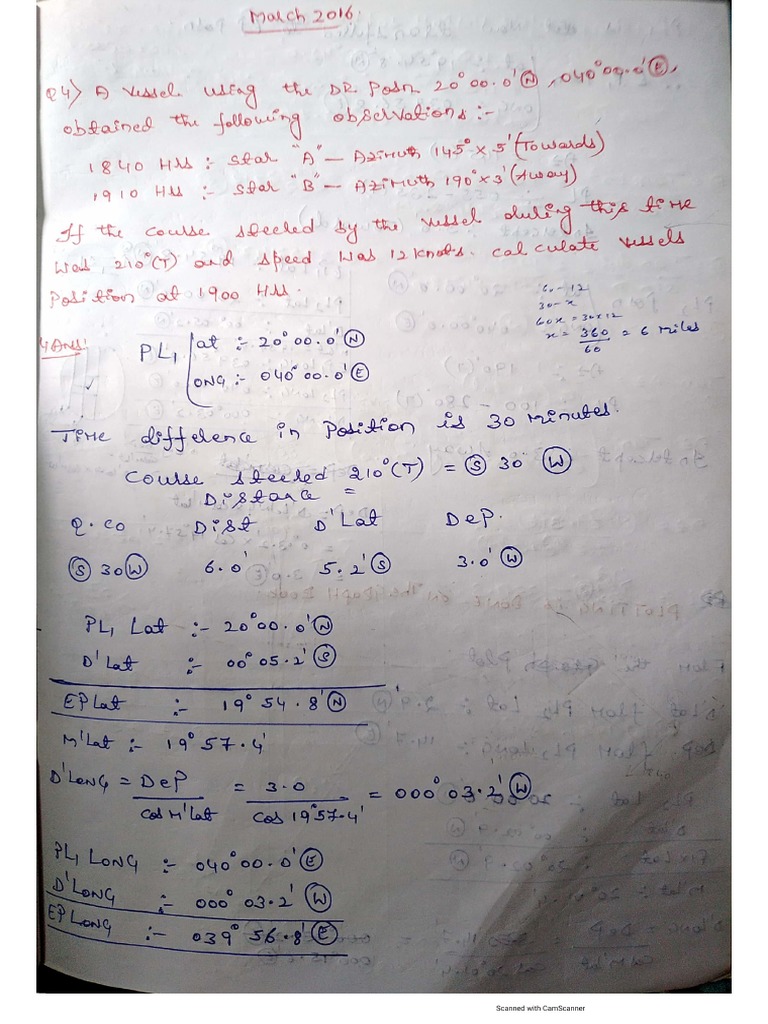 March 2016.
Q4) A vessel using the DR Posn 20°00.0' N, 040°00.0' E,
obtained the following observations :-
1840 Hrs :- Star "A" – Azimuth 145° x 5' (Towards)
1910 Hrs :- Star "B" – Azimuth 190° x 3' (Away)
If the course steered by the vessel during this time
was 210°(T) and speed was 12 knots. calculate vessels
Position at 1900 Hrs.
60 – 12
30 – x
60x = 30x12
x = 360/60 = 6 miles
4 Ans:
PL1 Lat :- 20°00.0' N
Long :- 040°00.0' E
Time difference in Position is 30 minutes.
Course steered 210°(T) = S 30° W
Distance =
Q.Co Dist D'Lat Dep.
S 30 W 6.0' 5.2' S 3.0' W
PL1 Lat :- 20°00.0' N
D'Lat :- 00°05.2' S
EP Lat :- 19°54.8' N
M'Lat :- 19°57.4'
D'Long = Dep/Cos M'Lat = 3.0/Cos 19°57.4' = 000°03.2' W
PL1 Long :- 040°00.0' E
D'Long :- 000°03.2' W
EP Long :- 039°56.8' E
Scanned with CamScanner